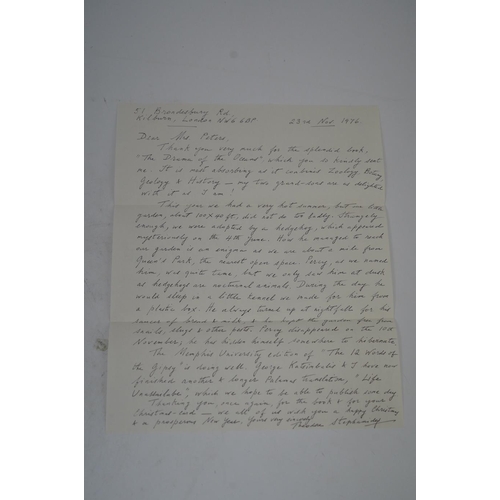 51 Brondesbury Rd.
Kilburn, London NW6 6BP 23rd Nov. 1976
Dear Mrs Peters,
Thank you very much for the splendid book,
"The Drama of the Oceans" which you so kindly sent
me. It is most absorbing as it combines Zoology, Botany,
Geology & History — my two grand-sons are as delighted
with it as I am!
This year we had a very hot summer, but our little
garden, about 100 X 40 ft, did not do too badly. Strangely
enough, we were adopted by a hedgehog, which appeared
mysteriously on the 4th June. How he managed to reach
our garden is an enigma as we are about a mile from
Queen's Park, the nearest open space. Porgy, as we named
him, was quite tame but we only saw him at dusk
as hedgehogs are nocturnal animals. During the day he
would sleep in a little kennel we made for him from
a plastic box. He always turned up at nightfall for his
saucer of bread & milk, & he kept the garden free from
snails, slugs & other pests. Porgy disappeared on the 10th
November; he has hidden himself somewhere to hibernate.
The Memphis University edition of "The 12 Words of
the Gipsy" is doing well. George Katsimbalis & I have now
finished another & longer Palamas translation, "Life
Unalterable", which we hope to be able to publish some day.
Thanking you, once again, for the book & for your
Christmas card — we all of us wish you a happy Christmas
& a prosperous New Year. Yours very sincerely
Theodore Stephanides